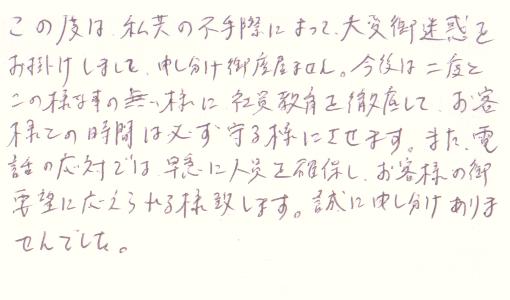 この度は、私共の不手際によって、大変御迷惑を
お掛けしまして、申し分け御座居ません。今後は二度と
この様な事の無い様に社員教育を徹底して、お客
様との時間は必ず守る様にさせます。また、電
話の応対では、早急に人員を確保し、お客様の御
要望に応えられる様致します。誠に申し分けありま
せんでした。